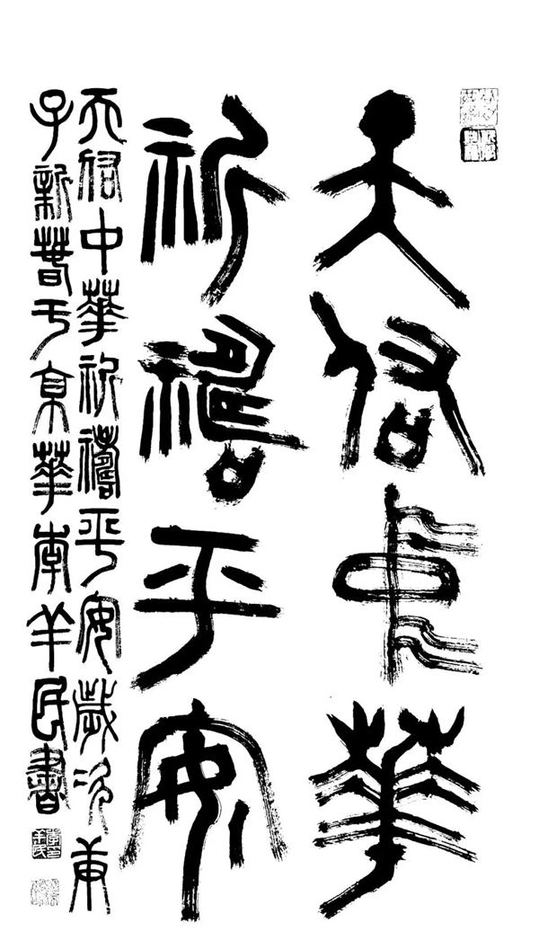 天佑中華
祈禱平安
天佑中華祈禱平安歲次庚
子新春于京華李羊民書